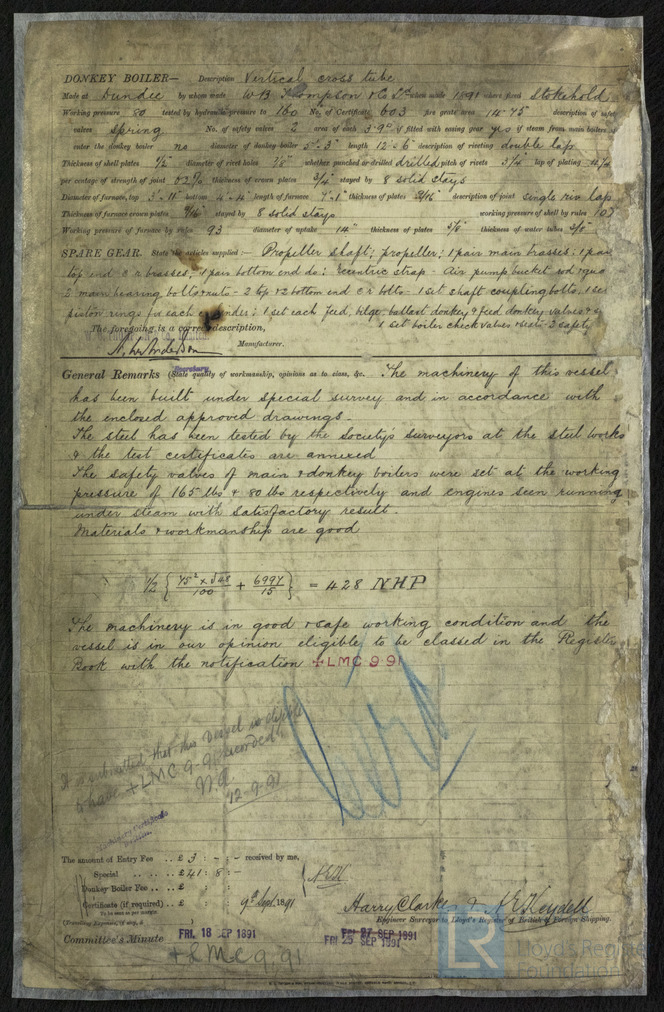 DONKEY BOILER— Description Vertical cross tube
Made at Dundee by whom made W B Thompson & Co Ld when made 1891 where fixed Stokehold
Working pressure 80 tested by hydraulic pressure to 160 No. of Certificate 603 fire grate area 14.75 description of safety
valves Spring No. of safety valves 2 area of each 3.9" if fitted with easing gear yes if steam from main boilers
enter the donkey boiler no diameter of donkey boiler 5'-3" length 12'-6" description of riveting double lap
Thickness of shell plates 1/2" diameter of rivet holes 7/8" whether punched or drilled drilled pitch of rivets 3 1/4" lap of plating
per centage of strength of joint thickness of crown plates 3/4" stayed by 8 solid stays
Diameter of furnace, top 3'-11" bottom 4'-4" length of furnace 7'-1" thickness of plates 9/16" description of joint single riv lap
Thickness of furnace crown plates 9/16" stayed by 8 solid stays working pressure of shell by rules 107
Working pressure of furnace by rules 93 diameter of uptake 14" thickness of plates 3/8" thickness of water tubes 3/8"
SPARE GEAR. State the articles supplied:— Propeller shaft; propeller; 1 pair main brasses; 1 pair
top end c r brasses; 1 pair bottom end do; eccentric strap - Air pump bucket rod & gua
5 main bearing bolts & nuts - 2 top & 2 bottom end c r bolts - 1 set shaft coupling bolts. 1 set
piston rings for each cylinder; 1 set each feed, bilge, ballast donkey & feed donkey valves & s
The foregoing is a correct description, 1 set boiler check valves & seats - 3 safety
Manufacturer.
Secretary
General Remarks (State quality of workmanship, opinions as to class, &c. The machinery of this vessel
has been built under special survey and in accordance with
the enclosed approved drawings.
The steel has been tested by the Society's surveyors at the steel works
& the test certificates are annexed
The safety valves of main & donkey boilers were set at the working
pressure of 165 lbs & 80 lbs respectively and engines seen running
under steam with satisfactory result.
Materials & workmanship are good
1/2 { 75² × √48 / 100 + 6997 / 15 } = 428 NHP
The machinery is in good & safe working condition and the
vessel is in our opinion eligible to be classed in the Register
Book with the notification +LMC 9 91
It is submitted that this vessel is eligible
to have +LMC 9-91 recorded
12-9-91
The amount of Entry Fee .. £ 3 : - : - received by me,
Special .. £ 41 : 8 : -
Donkey Boiler Fee .. £
Certificate (if required) .. £ 9th Sept. 1891
To be sent as per margin
Harry Clarke & N E Keydell
Engineer Surveyor to Lloyd's Register of British & Foreign Shipping.
Committee's Minute FRI. 18 SEP 1891 FRI 25 SEP 1891
+LMC 9,91
LR Lloyd's Register
Foundation